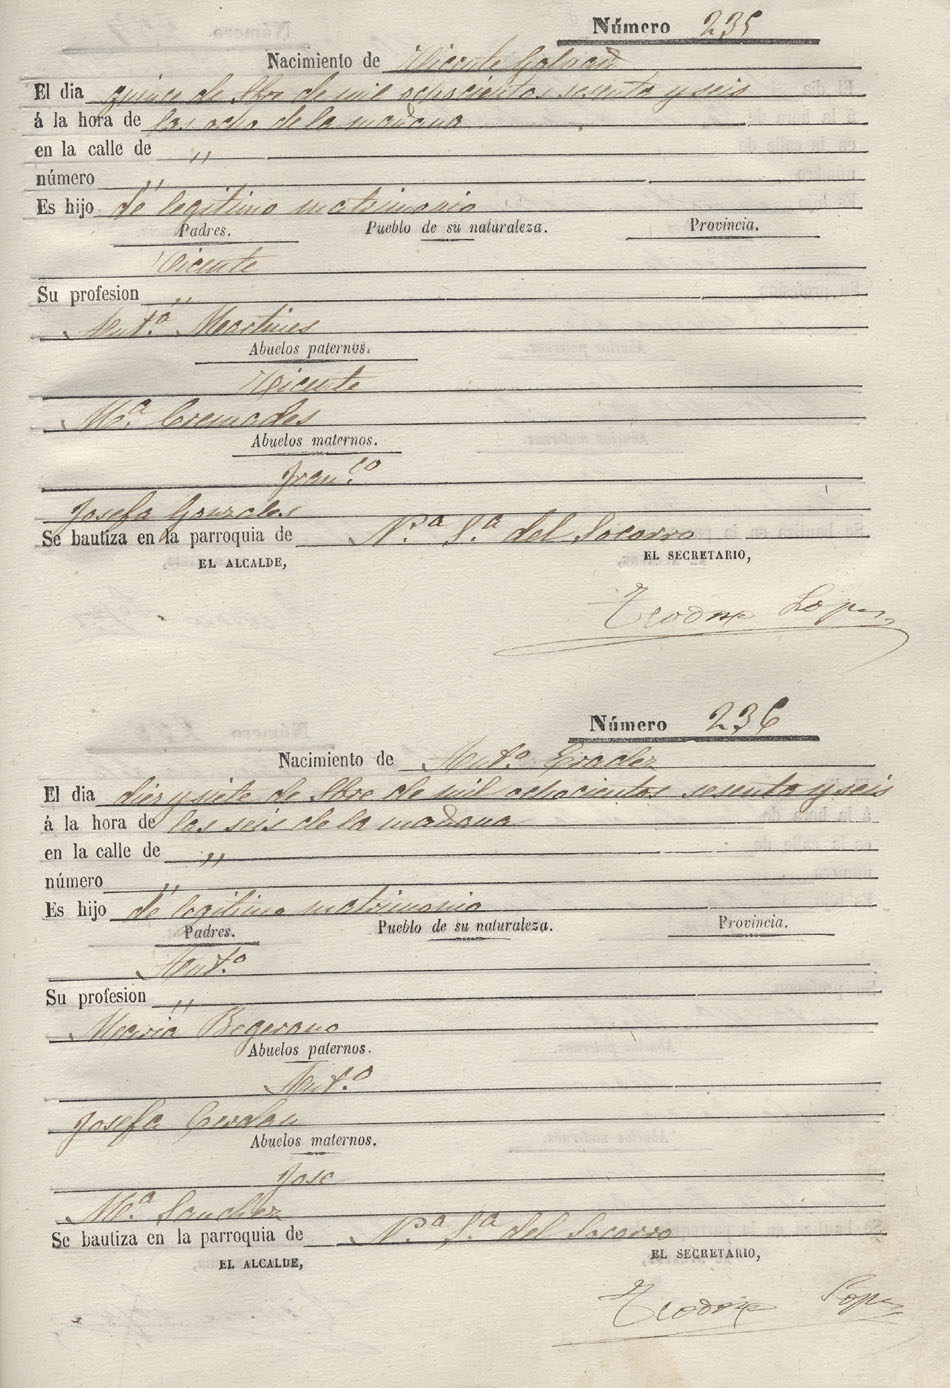 Número 235
Nacimiento de Vicente Galvañ
El dia quince de 8bre de mil ochocientos sesenta y seis
á la hora de las ocho de la mañana
en la calle de "
número "
Es hijo de legitimo matrimonio
Padres. Pueblo de su naturaleza. Provincia.
Vicente
Su profesion "
Ant.ª Martines
Abuelos paternos.
Vicente
M.ª Cremades
Abuelos maternos.
Fran.co
Josefa Gonzales
Se bautiza en la parroquia de N.ª S.ª del Socorro
EL ALCALDE, EL SECRETARIO,
Teodoro Lopez
Número 236
Nacimiento de Ant.º
El dia diez y siete de 8bre de mil ochocientos sesenta y seis
á la hora de las seis de la mañana
en la calle de "
número "
Es hijo de legitimo matrimonio
Padres. Pueblo de su naturaleza. Provincia.
Ant.º
Su profesion "
Maria Begerano
Abuelos paternos.
Ant.º
Josefa Cerdan
Abuelos maternos.
Jose
M.ª Sanchez
Se bautiza en la parroquia de N.ª S.ª del Socorro
EL ALCALDE, EL SECRETARIO,
Teodoro Lopez